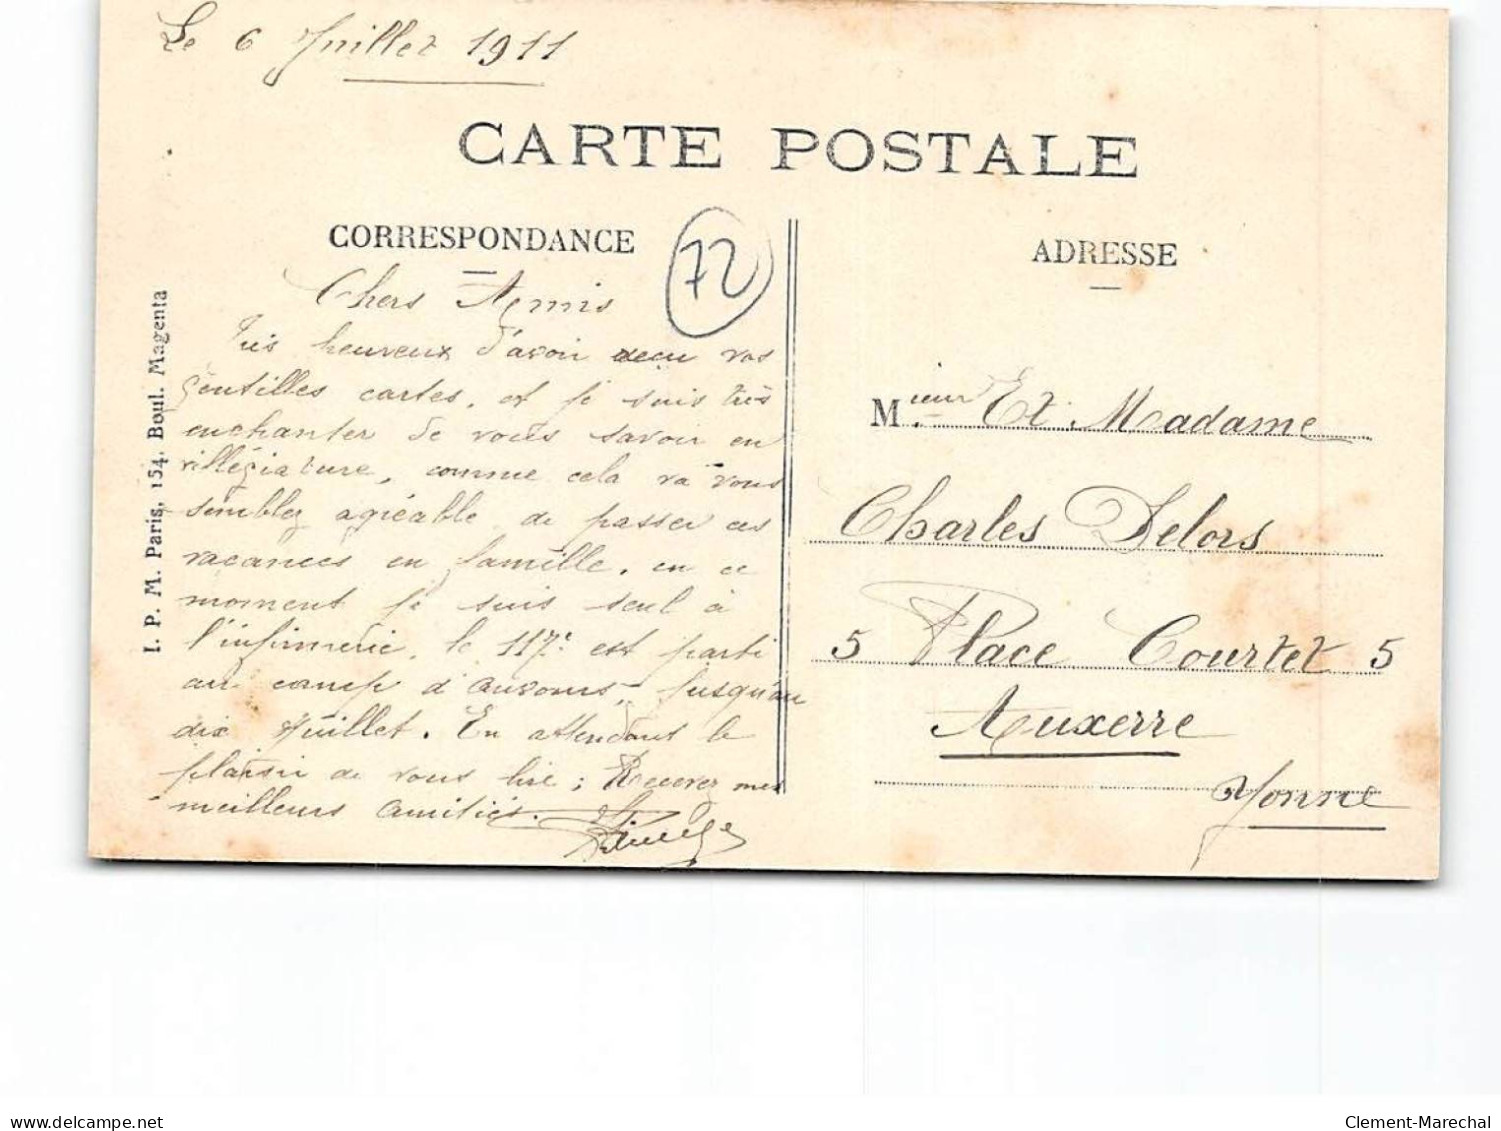 Le 6 Juillet 1911
CARTE POSTALE
CORRESPONDANCE
72
ADRESSE
I. P. M. Paris, 154, Boul. Magenta
Chers Amis
Très heureux d'avoir reçu vos
gentilles cartes, et je suis très
enchanter de vous savoir en
villégiature, comme cela va vous
sembler agréable de passer ces
vacances en famille, en ce
moment je suis seul à
l'infirmerie, le 117e est parti
au camp d'Auvours, jusqu'au
dix Juillet. En attendant le
plaisir de vous lire ; Recevez mes
meilleurs amitiés.
Mieur Et Madame
Charles Delors
5 Place Courtet 5
Auxerre
Yonne
www.delcampe.net
Clement-Marechal